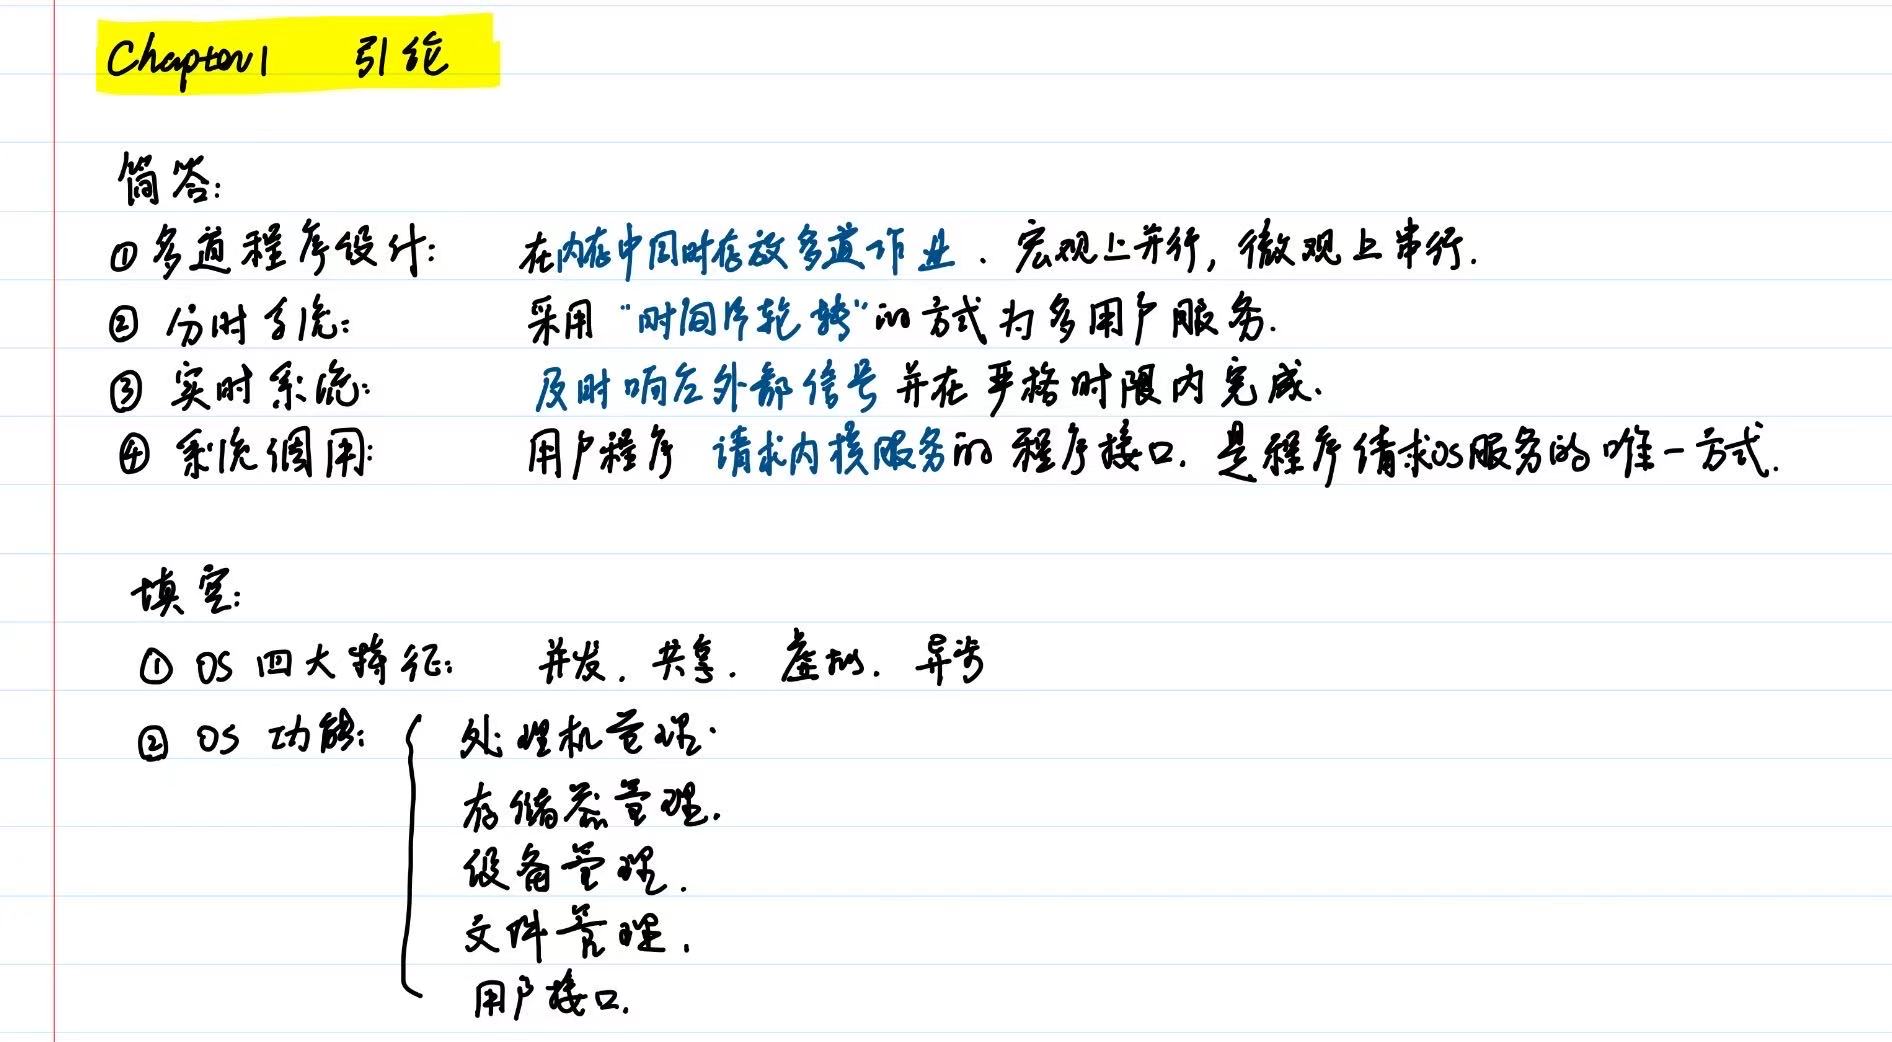 Chapter1 引论
简答:
① 多道程序设计: 在内存中同时存放多道作业. 宏观上并行, 微观上串行.
② 分时系统: 采用“时间片轮转”的方式为多用户服务.
③ 实时系统: 及时响应外部信号并在严格时限内完成.
④ 系统调用: 用户程序 请求内核服务的 程序接口. 是程序请求OS服务的唯一方式.
填空:
① OS 四大特征: 并发. 共享. 虚拟. 异步
② OS 功能: 处理机管理.
存储器管理.
设备管理.
文件管理.
用户接口.